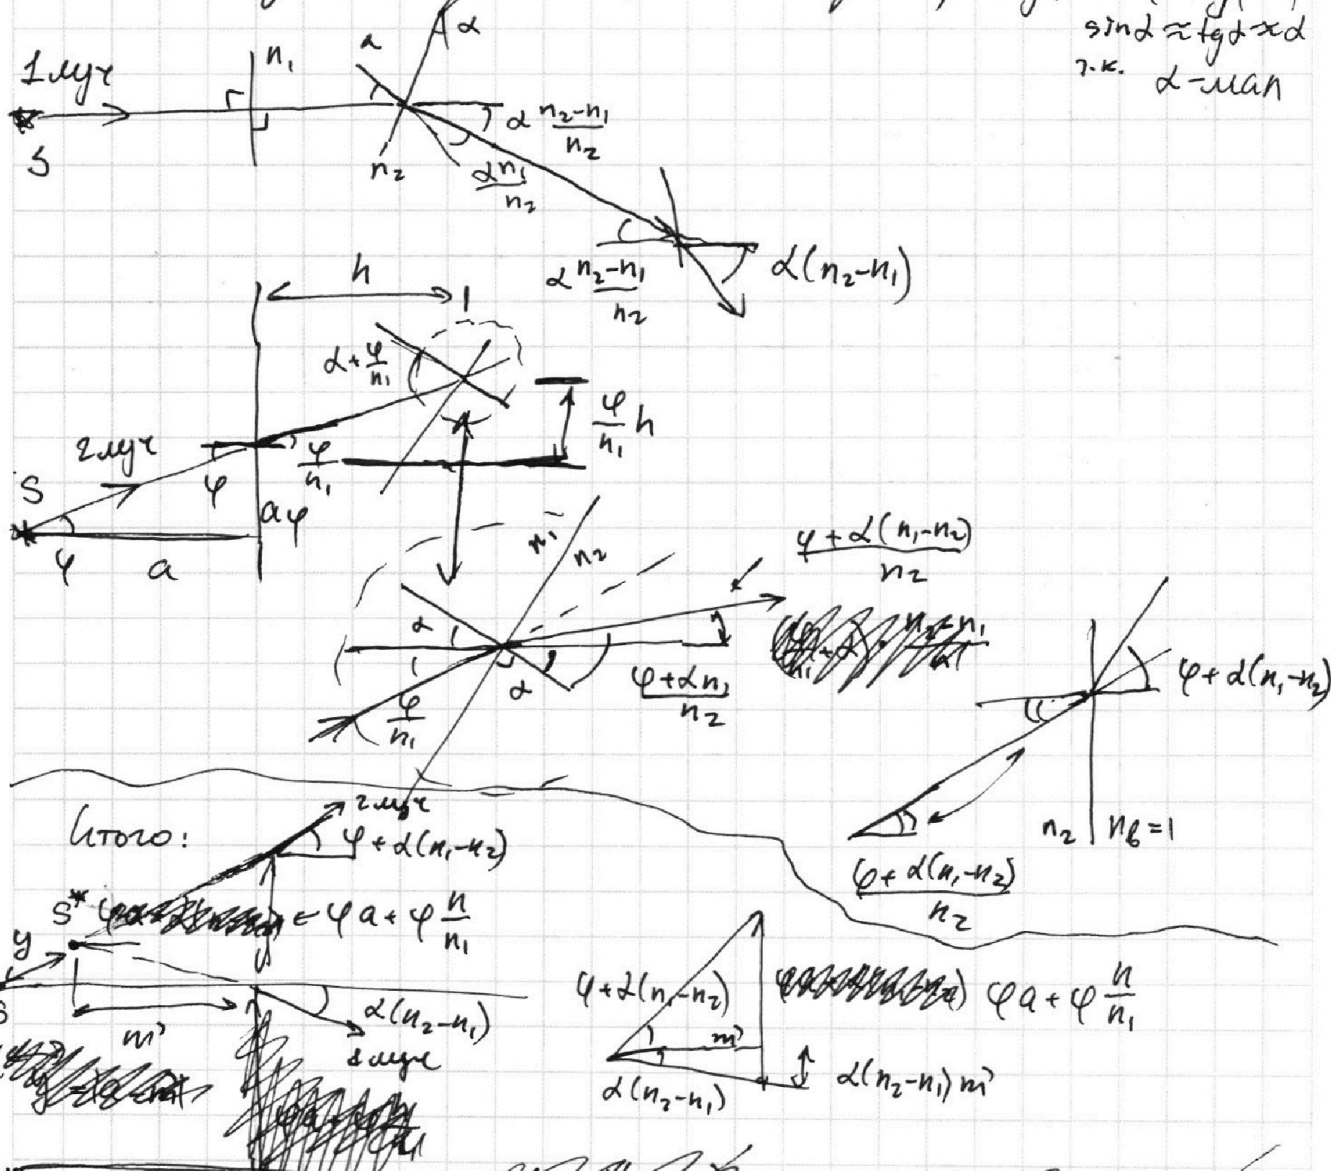 sinα ≈ tgα ≈ α
т.к. α-мал
1 луч
n₁
α
α
S
n₂
α (n₂-n₁)/n₂
αn₁/n₂
α (n₂-n₁)/n₂
α(n₂-n₁)
h
α+φ/n₁
φ/n₁ h
2 луч
φ
φ/n₁
S
aφ
φ
a
n₁
n₂
(φ+α(n₁-n₂))/n₂
α
φ/n₁
α
(φ+αn₁)/n₂
φ+α(n₁-n₂)
n₂
nв=1
(φ+α(n₁-n₂))/n₂
Итого:
2 луч
φ+α(n₁-n₂)
S*
φa+φ h/n₁
y
S
m'
α(n₂-n₁)
1 луч
φ+α(n₁-n₂)
φa+φ h/n₁
m'
α(n₂-n₁)
α(n₂-n₁)m'